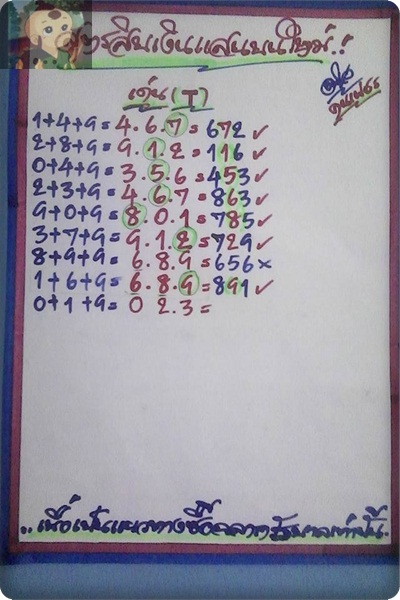 สูตรสิบเงินแสนบนใหม่.!
เด่น (T)
1+4+9= 4.6.7=672 ✓
2+8+9= 9.1.2=116 ✓
0+4+9= 3.5.6=453 ✓
2+3+9= 4.6.7=863 ✓
9+0+9= 8.0.1=785 ✓
3+7+9= 9.1.2=729 ✓
8+9+9= 6.8.9=656 ×
1+6+9= 6.8.9=891 ✓
0+1+9= 0 2.3=
..เพื่อเป็นแนวทางซื้อสลากรัฐบาลเท่านั้น.